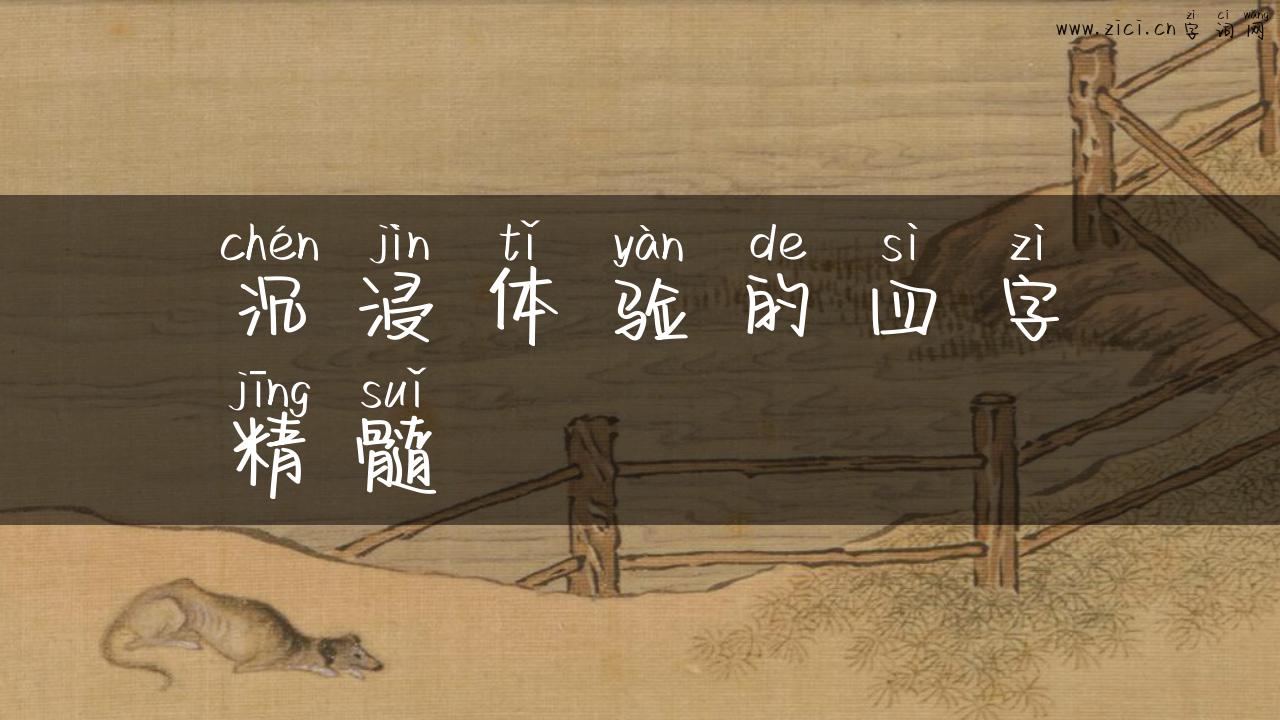 zì cí wǎng
www.zici.cn 字词网
chén jìn tǐ yàn de sì zì
沉浸体验的四字
jīng suǐ
精髓